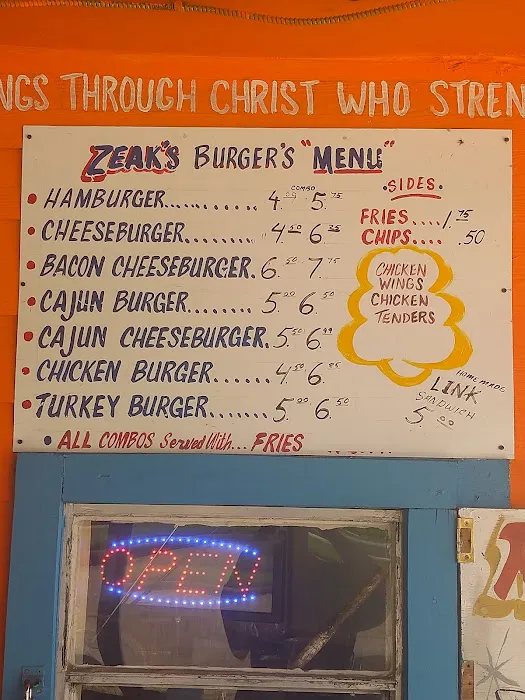 NGS THROUGH CHRIST WHO STREN
ZEAK'S BURGER'S "MENU"
COMBO
HAMBURGER........... 4.00 5.75
CHEESEBURGER........ 4.50 6.25
BACON CHEESEBURGER. 6.50 7.75
CAJUN BURGER........ 5.00 6.50
CAJUN CHEESEBURGER. 5.50 6.99
CHICKEN BURGER...... 4.50 6.25
TURKEY BURGER........ 5.00 6.50
• ALL COMBOS Served With... FRIES
•SIDES•
FRIES.... 1.75
CHIPS.... .50
CHICKEN
WINGS
CHICKEN
TENDERS
HOMEMADE
LINK
SANDWICH
5.00
OPEN